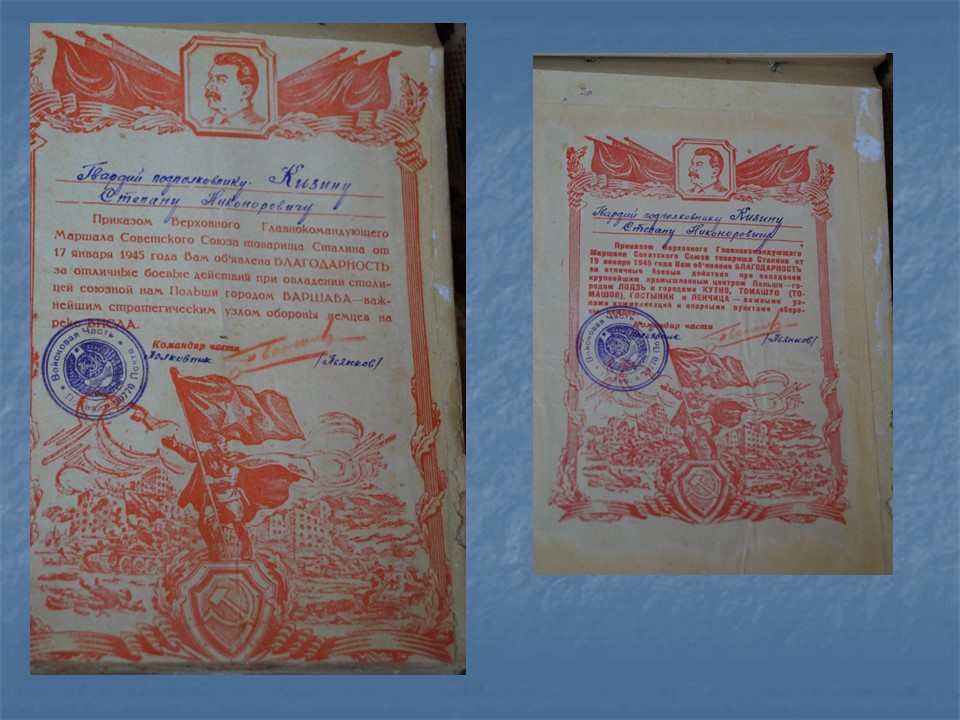 Гвардии подполковнику Кизину
Степану Никоноровичу
Приказом Верховного Главнокомандующего
Маршала Советского Союза товарища Сталина от
17 января 1945 года Вам об'явлена БЛАГОДАРНОСТЬ
за отличные боевые действия при овладении столи-
цей союзной нам Польши городом ВАРШАВА—важ-
нейшим стратегическим узлом обороны немцев на
реке ВИСЛА.
Командир части
Полковник
/Пьянков/
Войсковая Часть
Полевая Почта
20
Гвардии подполковнику Кизину
Степану Никоноровичу
Приказом Верховного Главнокомандующего
Маршала Советского Союза товарища Сталина от
19 января 1945 года Вам об'явлена БЛАГОДАРНОСТЬ
за отличные боевые действия при овладении
крупнейшим промышленным центром Польши—го-
родом ЛОДЗЬ и городами КУТНО, ТОМАШУВ (ТО-
МАШОВ), ГОСТЫНИН и ЛЕНЧИЦА — важными уз-
лами коммуникаций и опорными пунктами оборо-
ны немцев.
Командир части
Полковник
/Пьянков/
Войсковая Часть